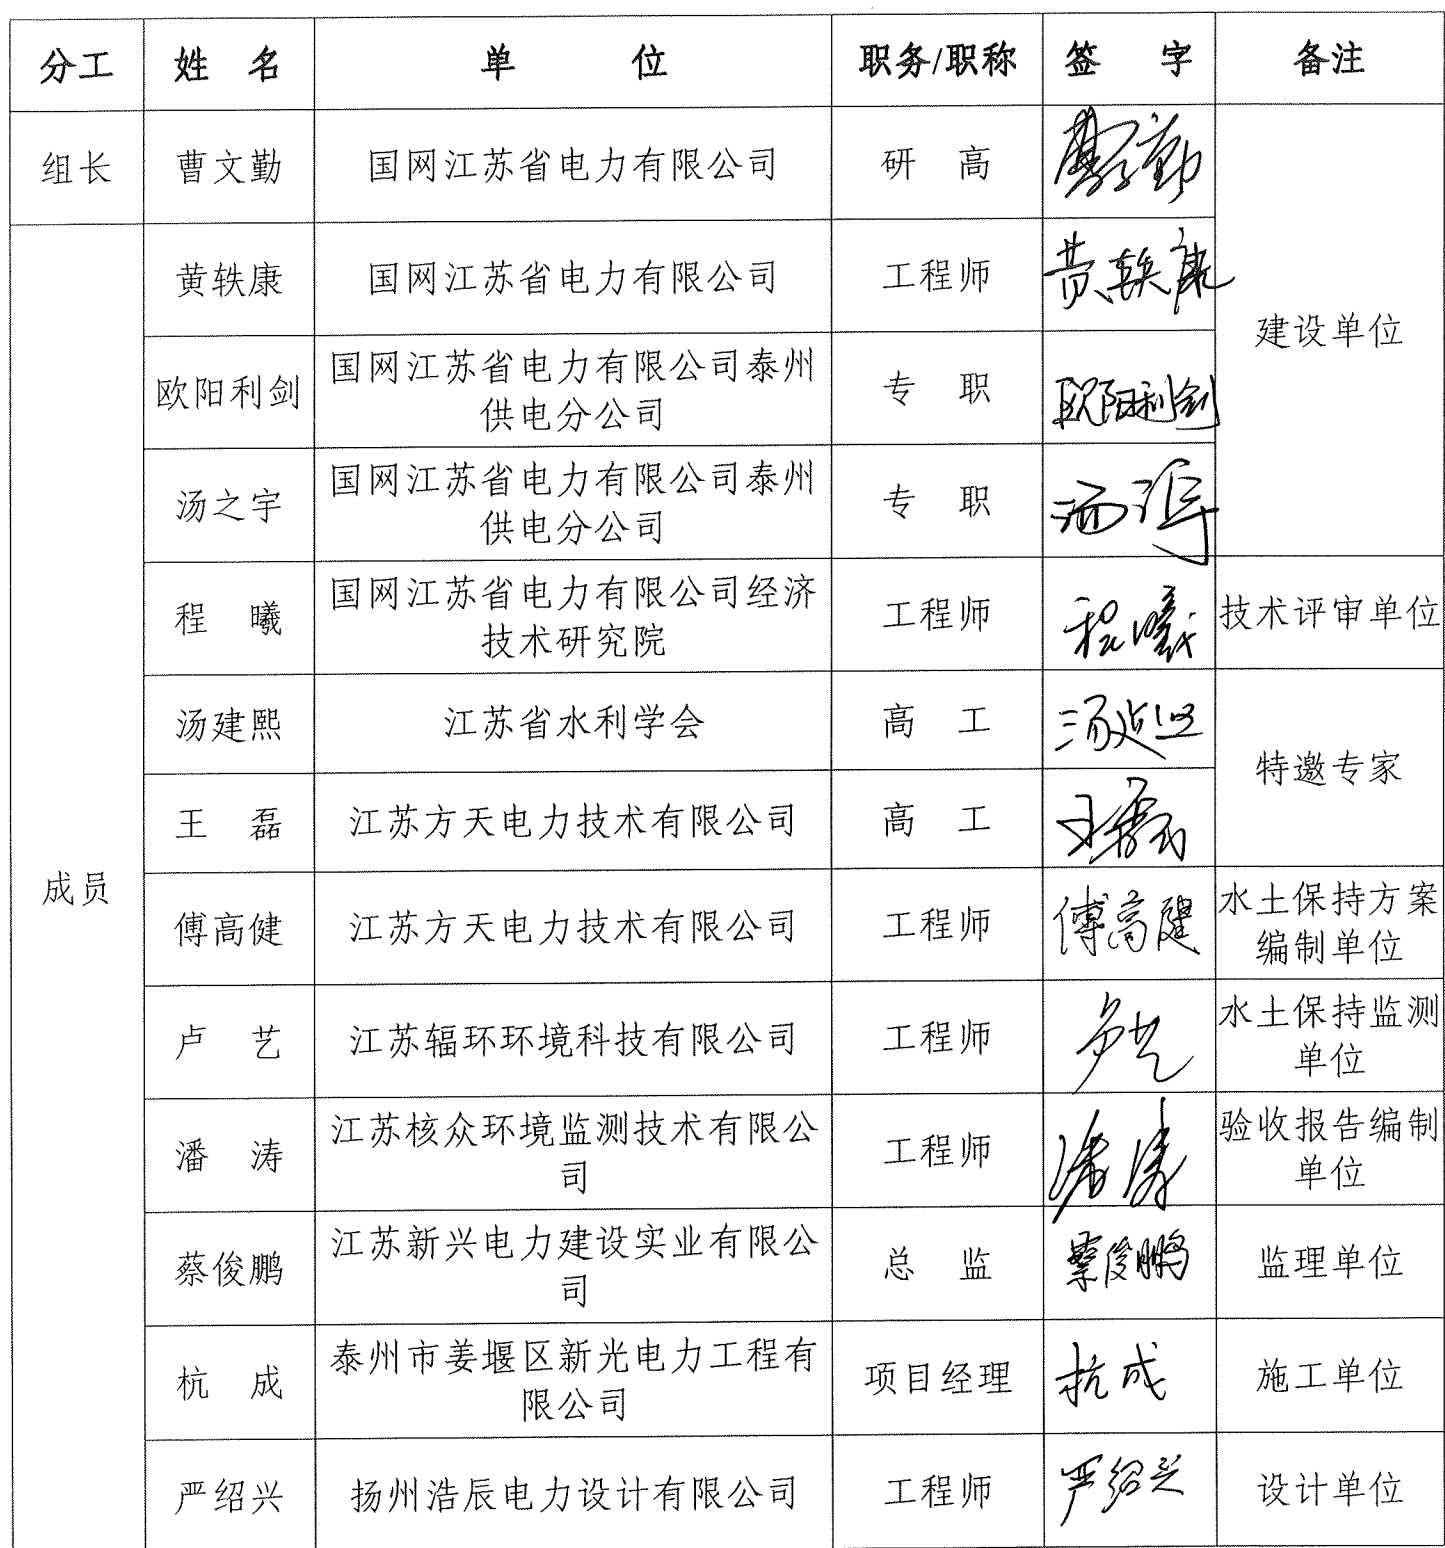 分工 姓 名 单 位 职务/职称 签 字 备注
组长 曹文勤 国网江苏省电力有限公司 研 高 曹文勤
黄轶康 国网江苏省电力有限公司 工程师 黄轶康
建设单位
欧阳利剑 国网江苏省电力有限公司泰州
供电分公司 专 职 欧阳利剑
汤之宇 国网江苏省电力有限公司泰州
供电分公司 专 职 汤之宇
程 曦 国网江苏省电力有限公司经济
技术研究院 工程师 程曦 技术评审单位
汤建熙 江苏省水利学会 高 工 汤建熙
特邀专家
王 磊 江苏方天电力技术有限公司 高 工 王磊
成员
傅高健 江苏方天电力技术有限公司 工程师 傅高健 水土保持方案
编制单位
卢 艺 江苏辐环环境科技有限公司 工程师 卢艺 水土保持监测
单位
潘 涛 江苏核众环境监测技术有限公
司 工程师 潘涛 验收报告编制
单位
蔡俊鹏 江苏新兴电力建设实业有限公
司 总 监 蔡俊鹏 监理单位
杭 成 泰州市姜堰区新光电力工程有
限公司 项目经理 杭成 施工单位
严绍兴 扬州浩辰电力设计有限公司 工程师 严绍兴 设计单位